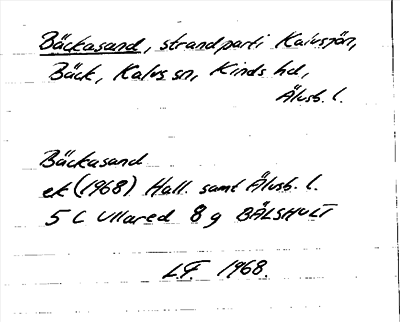 Bäckasand, strandparti Kalvsjön,
Bäck, Kalvs sn, Kinds hd,
Älvsb. l.
Bäckasand
ek (1968) Hall. samt Älvsb. l.
5 C Ullared 8 g BÄLSHULT
L.F. 1968.